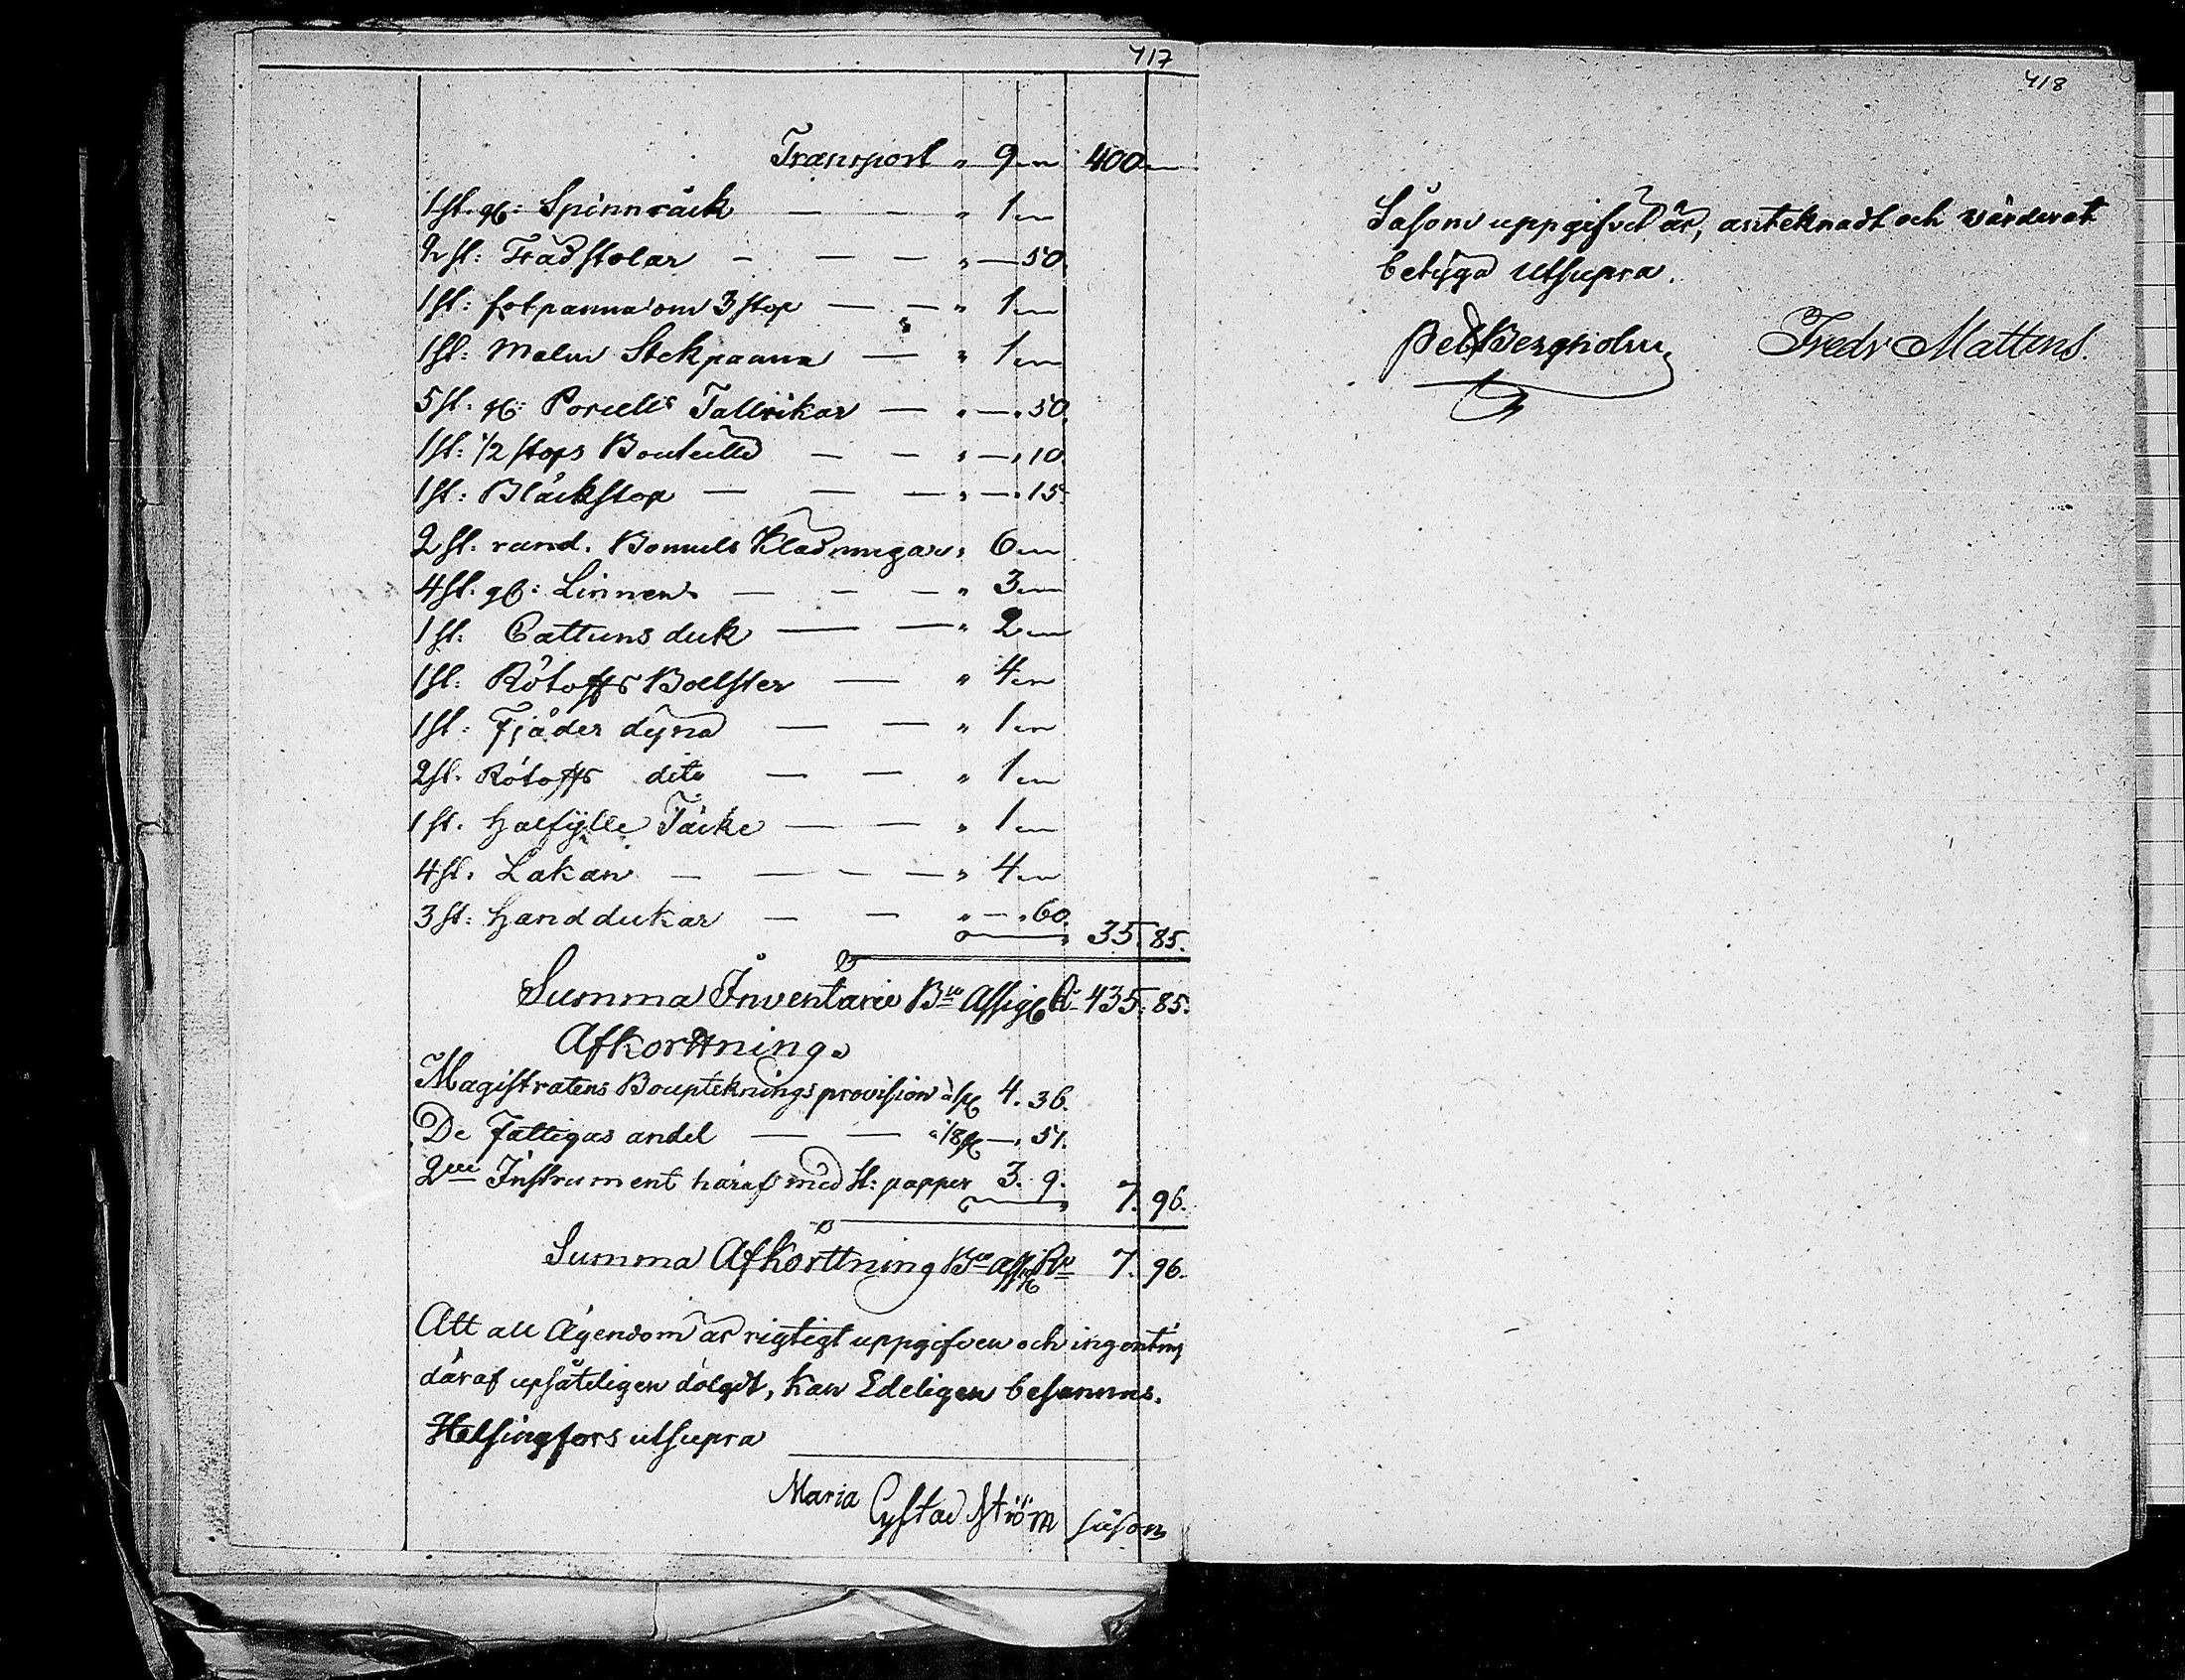 717
Transport " 9 — 400 —
1 st. gl: Spinnråck — — " 1 —
2 st: Trädstolar — — — " — 50.
1 st: fotpanna om 3 stop — — " 1 —
1 st: Malm Stekpanna — " 1 —
5 st. gl: Porcells Tallrikar — " — . 50.
1 st: 1/2 stops Bouteille — — " — . 10.
1 st: Bläckstop — — — " — . 15.
2 st. rand. Bomuls Kládningar " 6 —
4 st. gl: Linnen — — — " 3 —
1 st: Cattuns duk — — " 2 —
1 st: Rötoffs Bolster — " 4 —
1 st: Fjäder dyna — — " 1 —
2 st. Rötoffs dito — — " 1 —
1 st. Halfylle Täcke — — " 1 —
4 st. Lakan — — — — " 4 —
3 st: Handdukar — — " — . 60. 35. 85.
Summa Inventarie Bco Assig: R 435. 85.
Afkorttning.
Magistratens Boupteknings provision à 1 4. 36.
De Fattigas andel — — à 1/8 — . 51.
2ne Instrument häraf med st: papper 3. 9. 7. 96.
Summa Afkorttning Bco Ass: Ro 7. 96.
Att all Ägendom är rigtigt uppgifven och ingenting
däraf upsåteligen dölgdt, kan Edeligen besannas.
Helsingfors utsupra
Maria Gustava Ström såsom
718
Såsom uppgifvet är, anteknadt och värderat
betyga utsupra.
Bergholm Fredr Mattens.